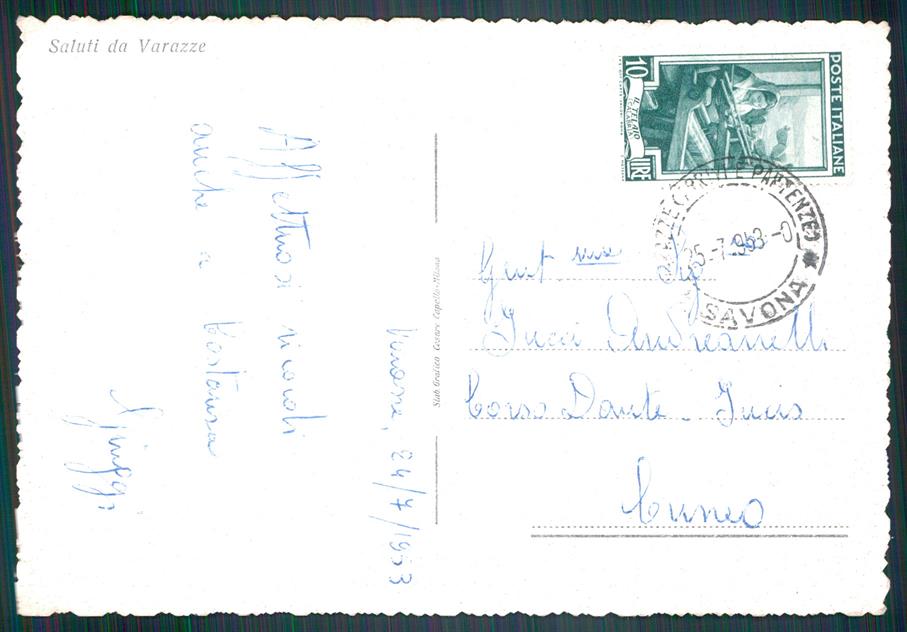 Saluti da Varazze
POSTE ITALIANE
10
LIRE
IL TELAIO
(ARRIVI E PARTENZE)
25-7-953-0
SAVONA
Varazze, 24/7/1953
Affettuosi ricordi
anche a Costanza
Stab Grafico Cesare Capello-Milano
Gent.ma Sig.
Andreanelli
Corso Dante -
Cuneo